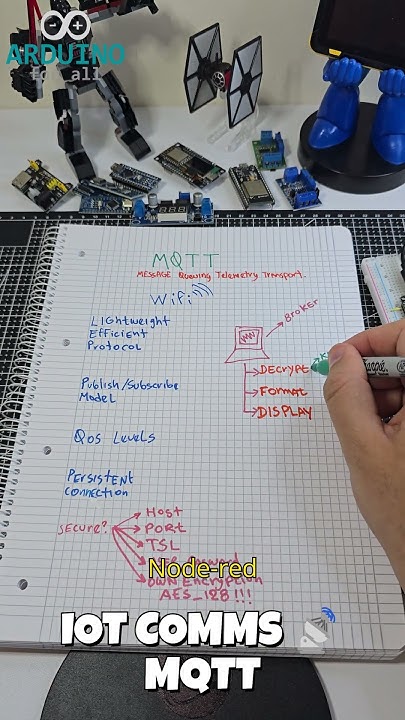 ARDUINO
for all
MQTT
MESSAGE Queuing Telemetry Transport.
WiFi
Lightweight
Efficient
Protocol
BROKER
DECRYPT
FORMAT
DISPLAY
Publish/Subscribe
Model
QoS Levels
Persistent
Connection
SECURE?
HOST
PORT
TSL
Node-red
OWN Encryption
AES_128!!!
IOT COMMS
MQTT